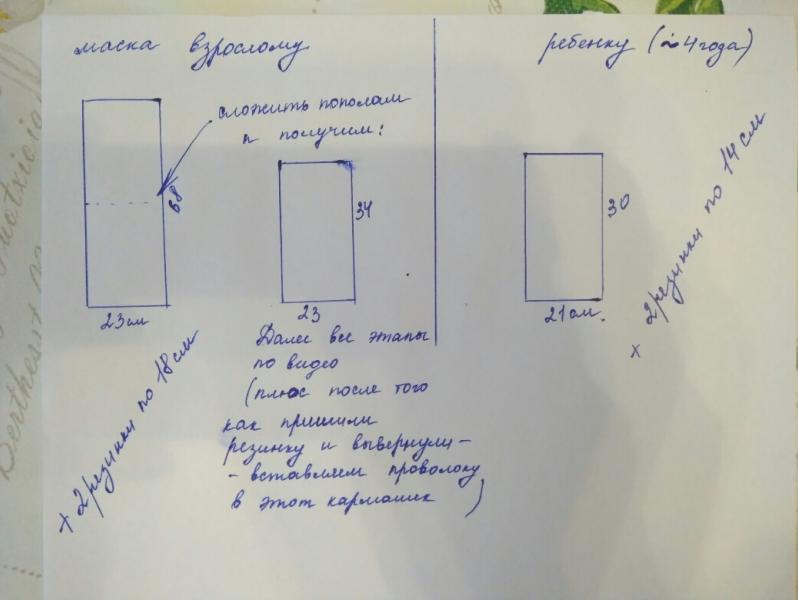 маска взрослому
сложить пополам
и получим:
68
23 см
34
23
Далее все этапы
по видео
(плюс после того
как пришили
резинку и вывернули -
- вставляем проволоку
в этот кармашек )
+ 2 резинки по 18 см
ребенку (~ 4 года)
30
21 см.
+ 2 резинки по 14 см